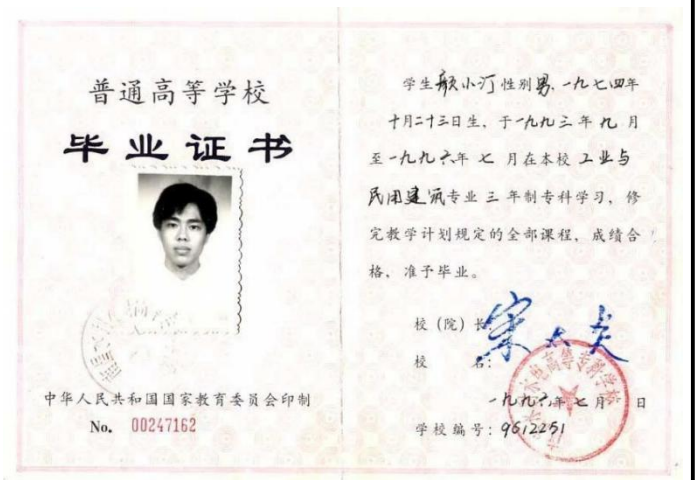 普通高等学校
毕业证书
中华人民共和国国家教育委员会印制
No. 00247162
学生颜小河性别男,一九七四年
十月二十三日生,于一九九三年九月
至一九九六年七月在本校工业与
民用建筑专业三年制专科学习,修
完教学计划规定的全部课程,成绩合
格,准予毕业。
校(院)长
校 名:
高等专科学校
一九九六年七月 日
学校编号:9612251